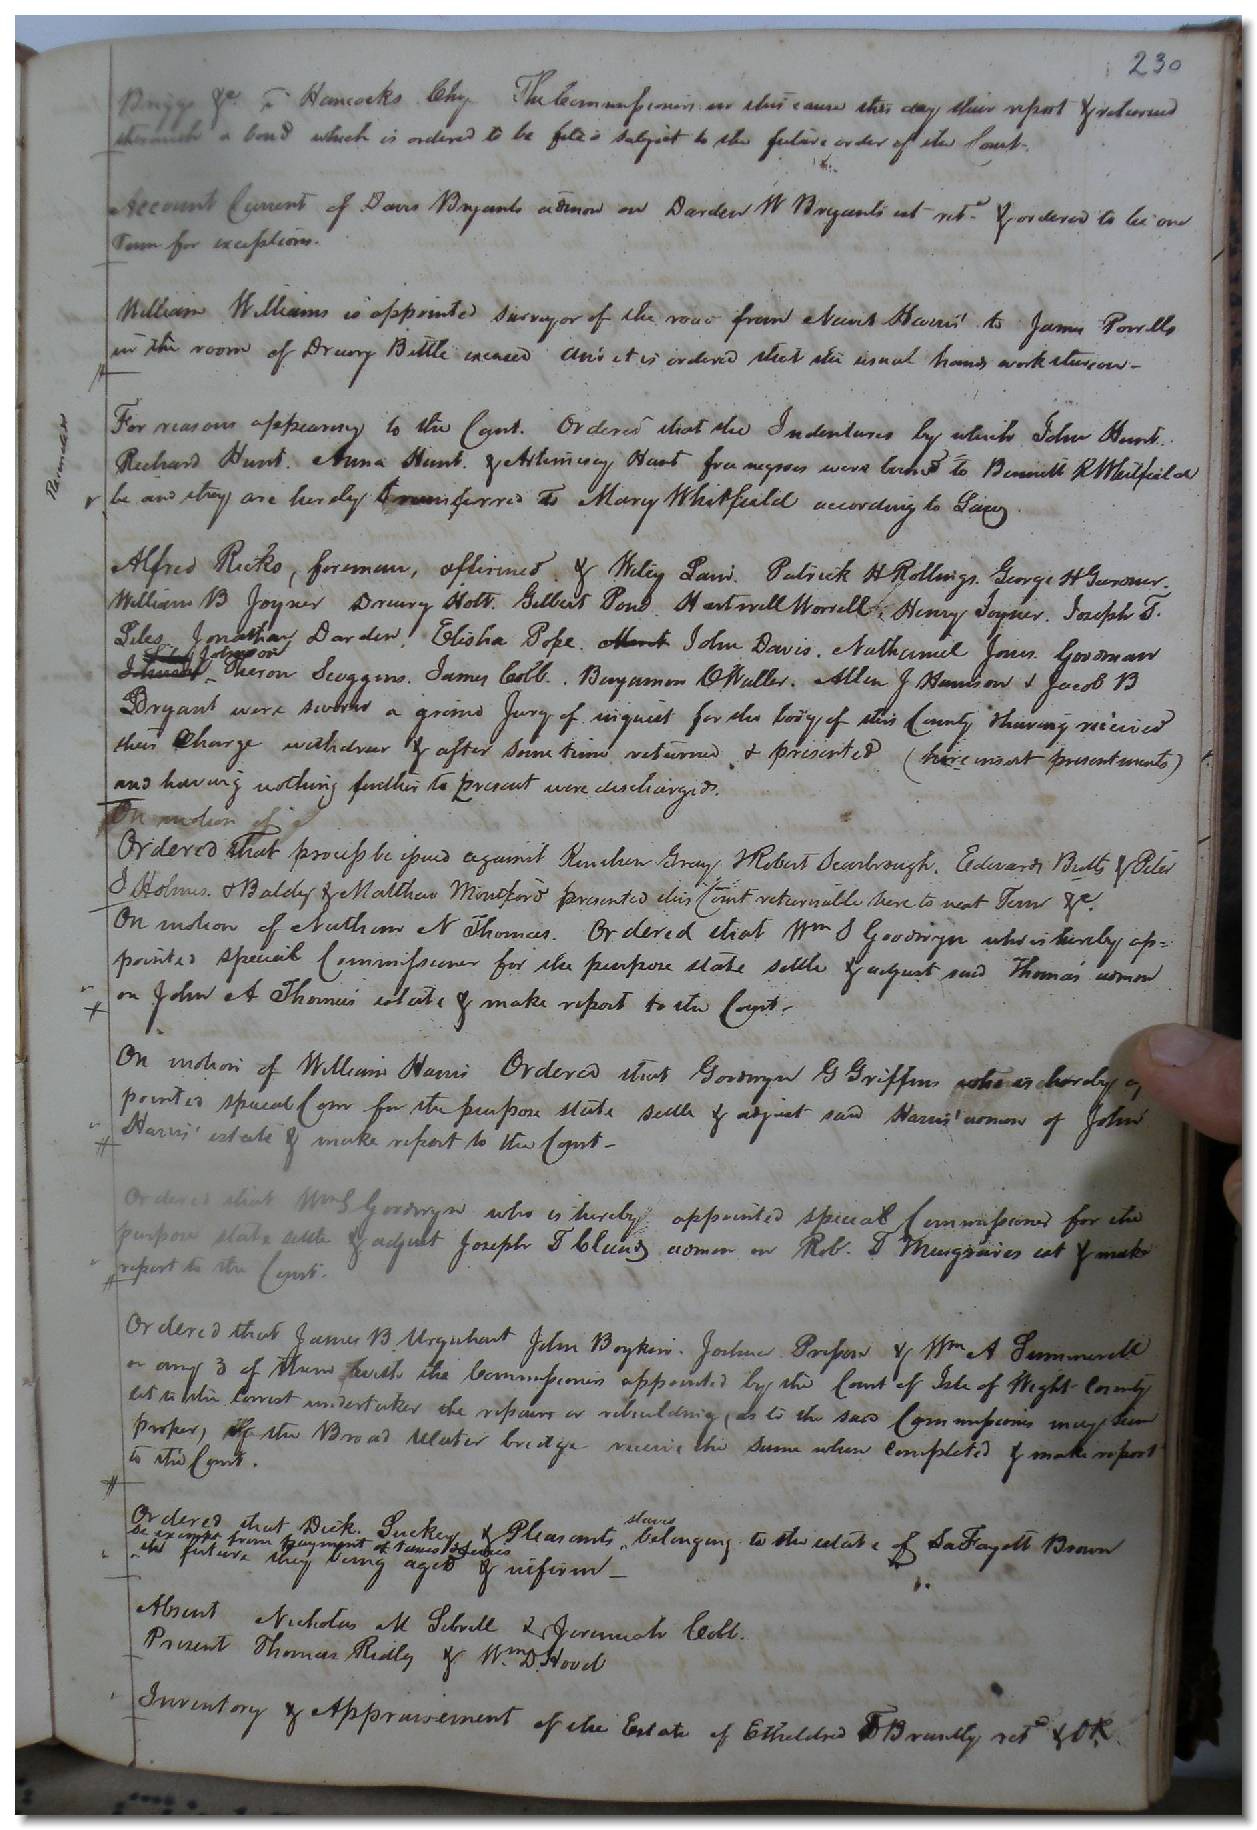 230
Briggs &c. vs Hancocks Chy The Commissioners in this cause this day their report & returned
therewith a bond which is ordered to be filed subject to the future order of the Court.
Account Current of Davis Bryants admon on Darden W Bryants est retd & ordered to lie one
Term for exceptions.
William Williams is appointed surveyor of the road from Newit Harris' to James Powells
in the room of Drewry Bittle excused And it is ordered that the usual hands work thereon-
For reasons appearing to the Court. Ordered that the Indentures by which John Hunt.
Richard Hunt. Anna Hunt. & Hunt free negroes were bound to Bennett R Whitfield
be and they are hereby transferred to Mary Whitfield according to Law
Alfred Ricks, foreman, affirmed. & Wiley Lain. Patrick H Rollings. George H Gardner.
William B Joyner Drewry Holt. Gilbert Pond. Hartwell Worrell. Henry Joyner. Joseph T.
Liles Jonathan Darden. Elisha Pope. John Davis. Nathaniel Jones. Goodman
Johnson
Theron Scoggins. James Cobb. Benjamin O Waller. Allen J Harrison & Jacob B
Bryant were sworn a grand Jury of inquest for the body of this County & having received
their Charge withdrew & after some time returned & presented (here insert presentments)
and having nothing further to present were discharged.
On motion of
Ordered that process be issued against Kinchen Gray & Robert Scarbrough. Edward Butts & Peter
J Holmes. & Baldy & Matthew Montford presented this Court returnable here to next Term &c.
On motion of Nathan N Thomas. Ordered that Wm S Goodwyn who is hereby ap=
pointed special Commissioner for the purpose state settle & adjust said Thomas' admon
on John A Thomas' estate & make report to the Court.
On motion of William Harris Ordered that Goodwyn G Griffin who is hereby ap
pointed special Comr for the purpose state settle & adjust said Harris' admon of John
Harris' estate & make report to the Court-
Ordered that Wm S Goodwyn who is hereby appointed special Commissioner for the
purpose state settle & adjust Joseph T Claud's admon on Rob. T Musgraves est & make
report to the Court.
Ordered that James B Urquhart John Boykin. Joshua Pretlow & Wm A Summerell
or any 3 of them with the Commissioners appointed by the Court of Isle of Wight County
let to the lowest undertaker the repairs or rebuilding, as to the said Commissioners may seem
proper, of the Broad Water bridge receive the same when completed & make report
to the Court.
Ordered that Dick. Luckey & Pleasants slaves belonging to the estate of LaFayett Brown
be exempt from payment of taxes & levies
in future they being aged & infirm-
Absent Nicholas M Sebrell & Jeremiah Cobb.
Present Thomas Ridley & Wm D Hood
Inventory & Appraisement of the Estate of Etheldred T Brantly retd & OR.